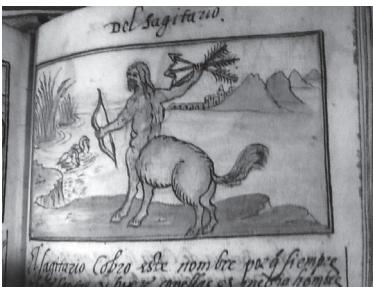 Del sagitario.
El sagitario Cobro este nombre porq̃ siempre
medio hombre